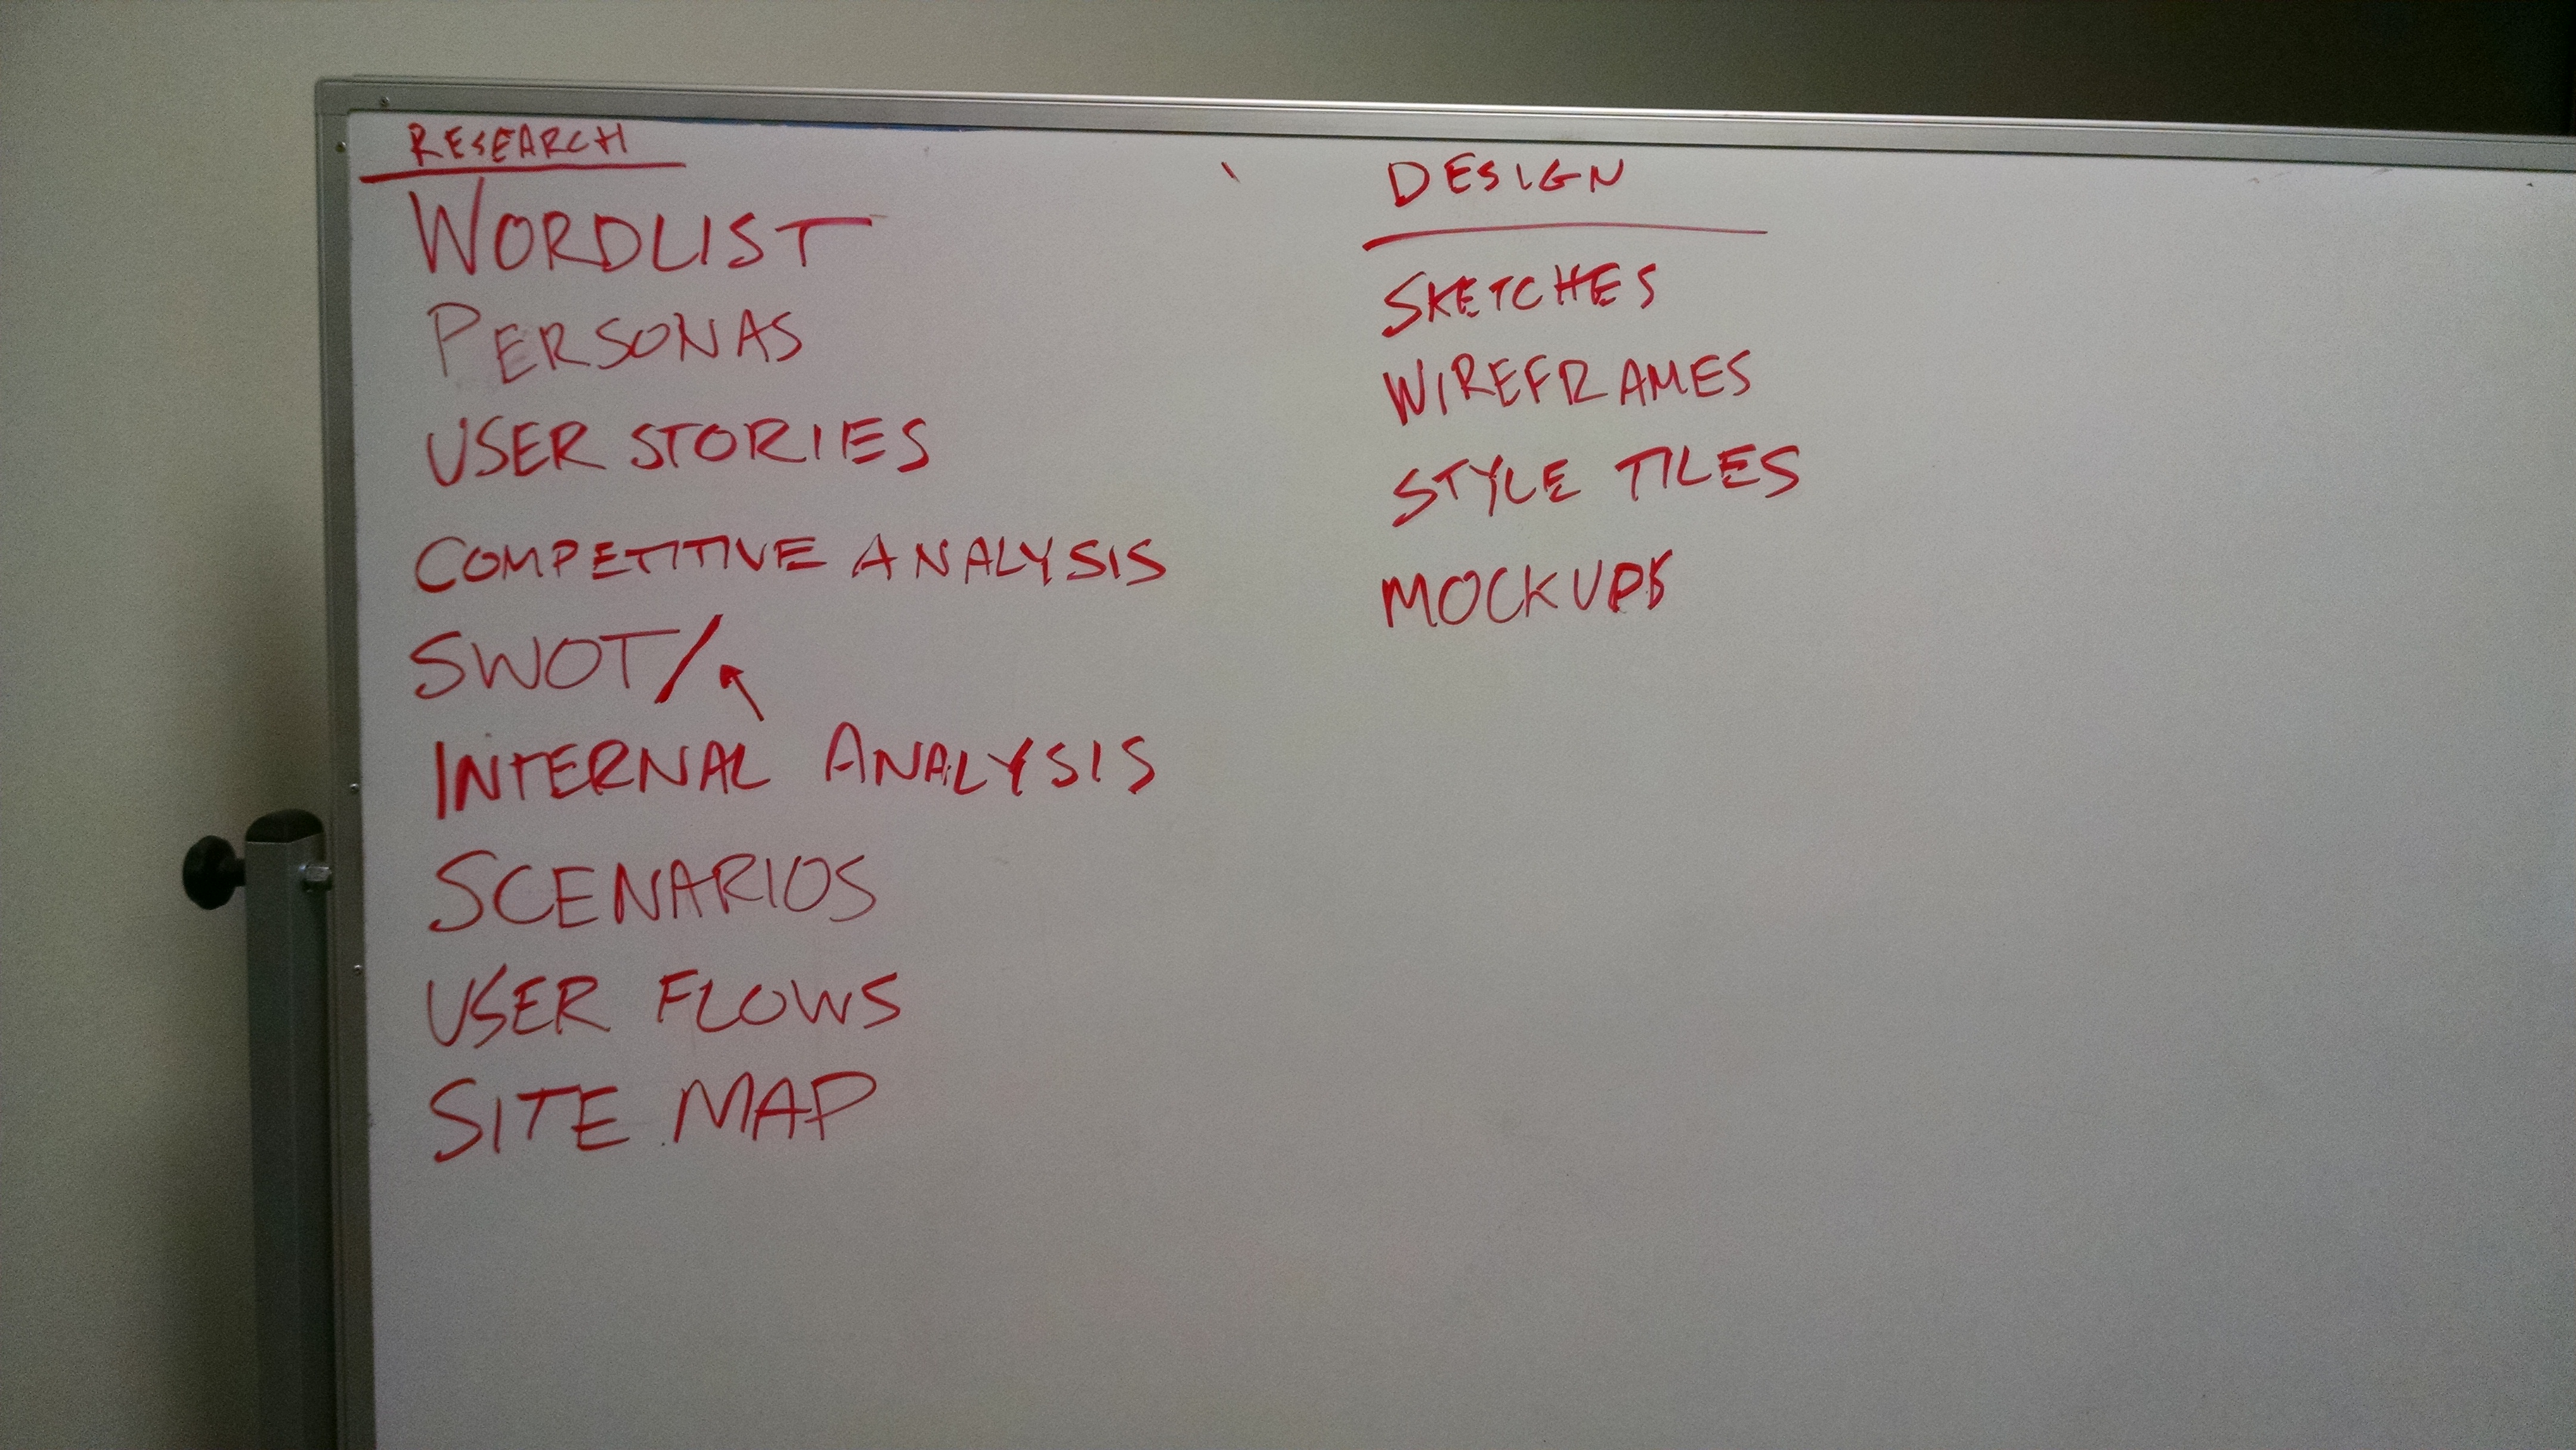 RESEARCH
WORDLIST
PERSONAS
USER STORIES
COMPETITIVE ANALYSIS
SWOT/
INTERNAL ANALYSIS
SCENARIOS
USER FLOWS
SITE MAP
DESIGN
SKETCHES
WIREFRAMES
STYLE TILES
MOCKUPS